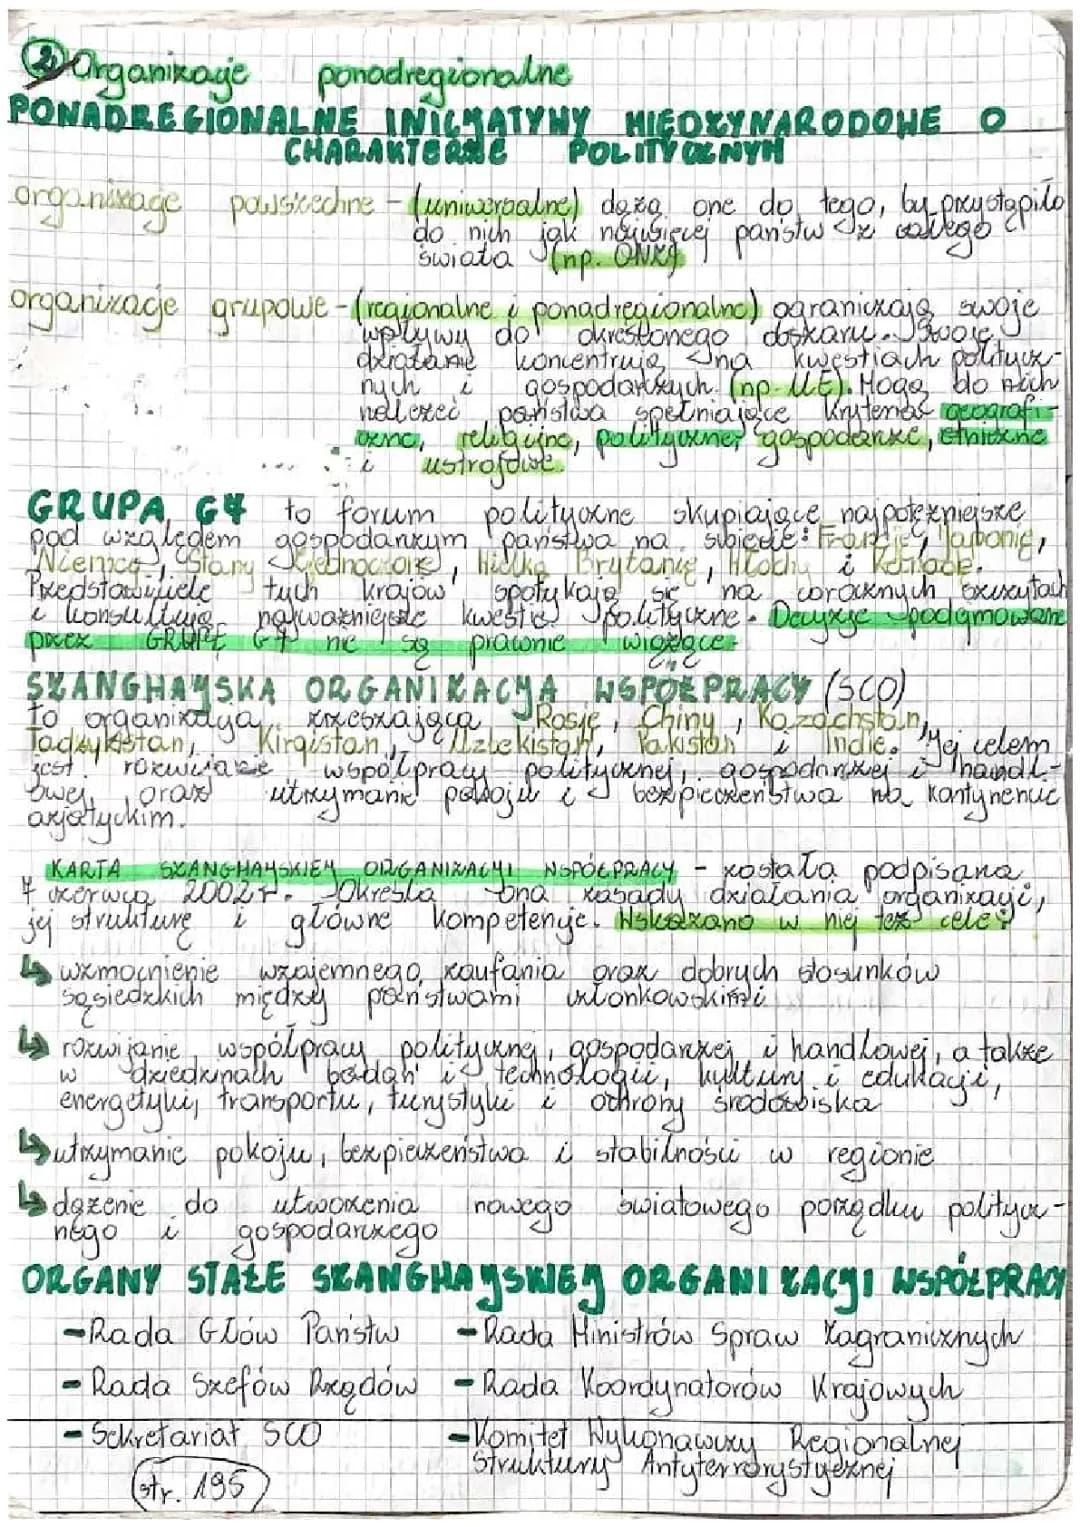 2. Organizacje ponadregionalne
PONADREGIONALNE INICJATYWY MIĘDZYNARODOWE O
CHARAKTERZE POLITYCZNYM
organizacje powszechne - (uniwersalne) dążą one do tego, by przystąpiło
do nich jak najwięcej państw z całego
świata (np. ONZ)
organizacje grupowe - (regionalne i ponadregionalne) ograniczają swoje
wpływy do określonego obszaru. Swoje
działanie koncentrują na kwestiach politycz-
nych i gospodarczych. (np. UE). Mogą do nich
należeć państwa spełniające kryteria geografi-
czne, religijne, polityczne, gospodarcze, etniczne
i ustrojowe.
GRUPA G7 to forum polityczne skupiające najpotężniejsze
pod względem gospodarczym państwa na świecie: Francję, Japonię,
Niemcy, Stany Zjednoczone, Wielką Brytanię, Włochy i Kanadę.
Przedstawiciele tych krajów spotykają się na corocznych szczytach
i konsultują najważniejsze kwestie polityczne. Decyzje podejmowane
przez GRUPĘ G7 nie są prawnie wiążące.
SZANGHAJSKA ORGANIZACJA WSPÓŁPRACY (SCO)
to organizacja zrzeszająca Rosję, Chiny, Kazachstan,
Tadżykistan, Kirgistan, Uzbekistan, Pakistan i Indie. Jej celem
jest rozwijanie współpracy politycznej, gospodarczej i handl-
owej oraz utrzymanie pokoju i bezpieczeństwa na kontynencie
azjatyckim.
KARTA SZANGHAJSKIEJ ORGANIZACJI WSPÓŁPRACY - została podpisana
7 czerwca 2002r. Określa ona zasady działania organizacji,
jej strukturę i główne kompetencje. Wskazano w niej też cele:
↳ wzmocnienie wzajemnego zaufania oraz dobrych stosunków
sąsiedzkich między państwami członkowskimi
↳ rozwijanie współpracy politycznej, gospodarczej i handlowej, a także
w dziedzinach badań i technologii, kultury i edukacji,
energetyki, transportu, turystyki i ochrony środowiska
↳ utrzymanie pokoju, bezpieczeństwa i stabilności w regionie
↳ dążenie do utworzenia nowego światowego porządku politycz-
nego i gospodarczego
ORGANY STAŁE SZANGHAJSKIEJ ORGANIZACJI WSPÓŁPRACY
- Rada Głów Państw - Rada Ministrów Spraw Zagranicznych
- Rada Szefów Rządów - Rada Koordynatorów Krajowych
- Sekretariat SCO - Komitet Wykonawczy Regionalnej
Struktury Antyterrorystycznej
str. 195